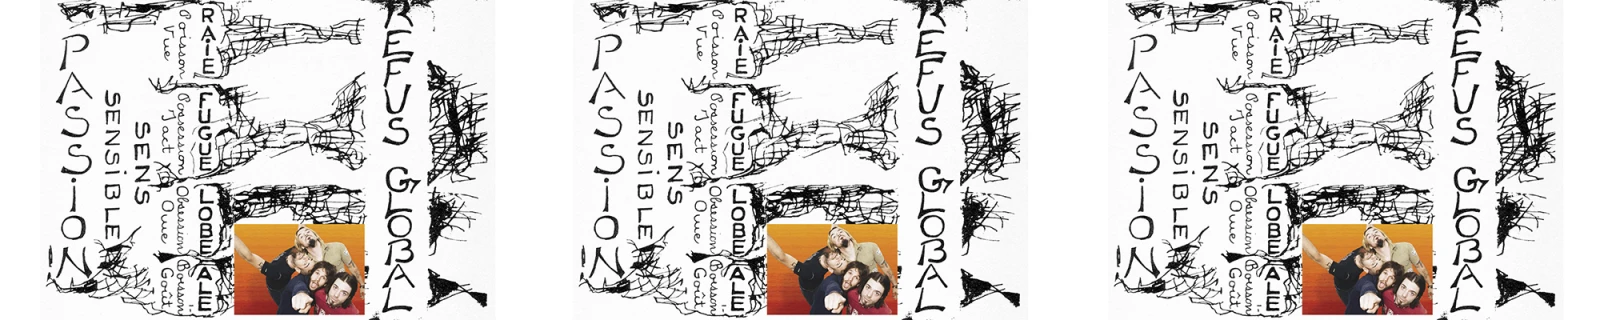 REFUS GLOBAL
RAIE FUGUE LOBE ALE
Poisson Possession Obsession Boisson
Vue Tact Ouïe Goût
SENS
SENSiBLE
PASSiON
REFUS GLOBAL
RAIE FUGUE LOBE ALE
Poisson Possession Obsession Boisson
Vue Tact Ouïe Goût
SENS
SENSiBLE
PASSiON
REFUS GLOBAL
RAIE FUGUE LOBE ALE
Poisson Possession Obsession Boisson
Vue Tact Ouïe Goût
SENS
SENSiBLE
PASSiON